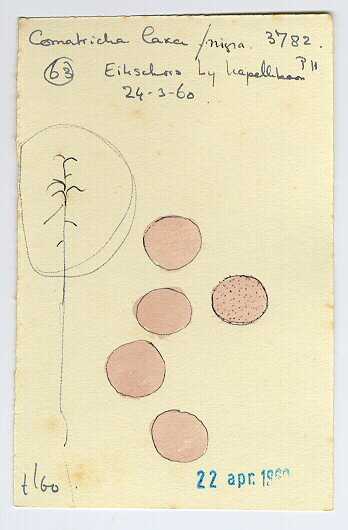 Comatricha laxa / nigra. 3782.
63 Eikschors by Kapellebaan PH
24-3-60
t/60.
22 apr. 1960